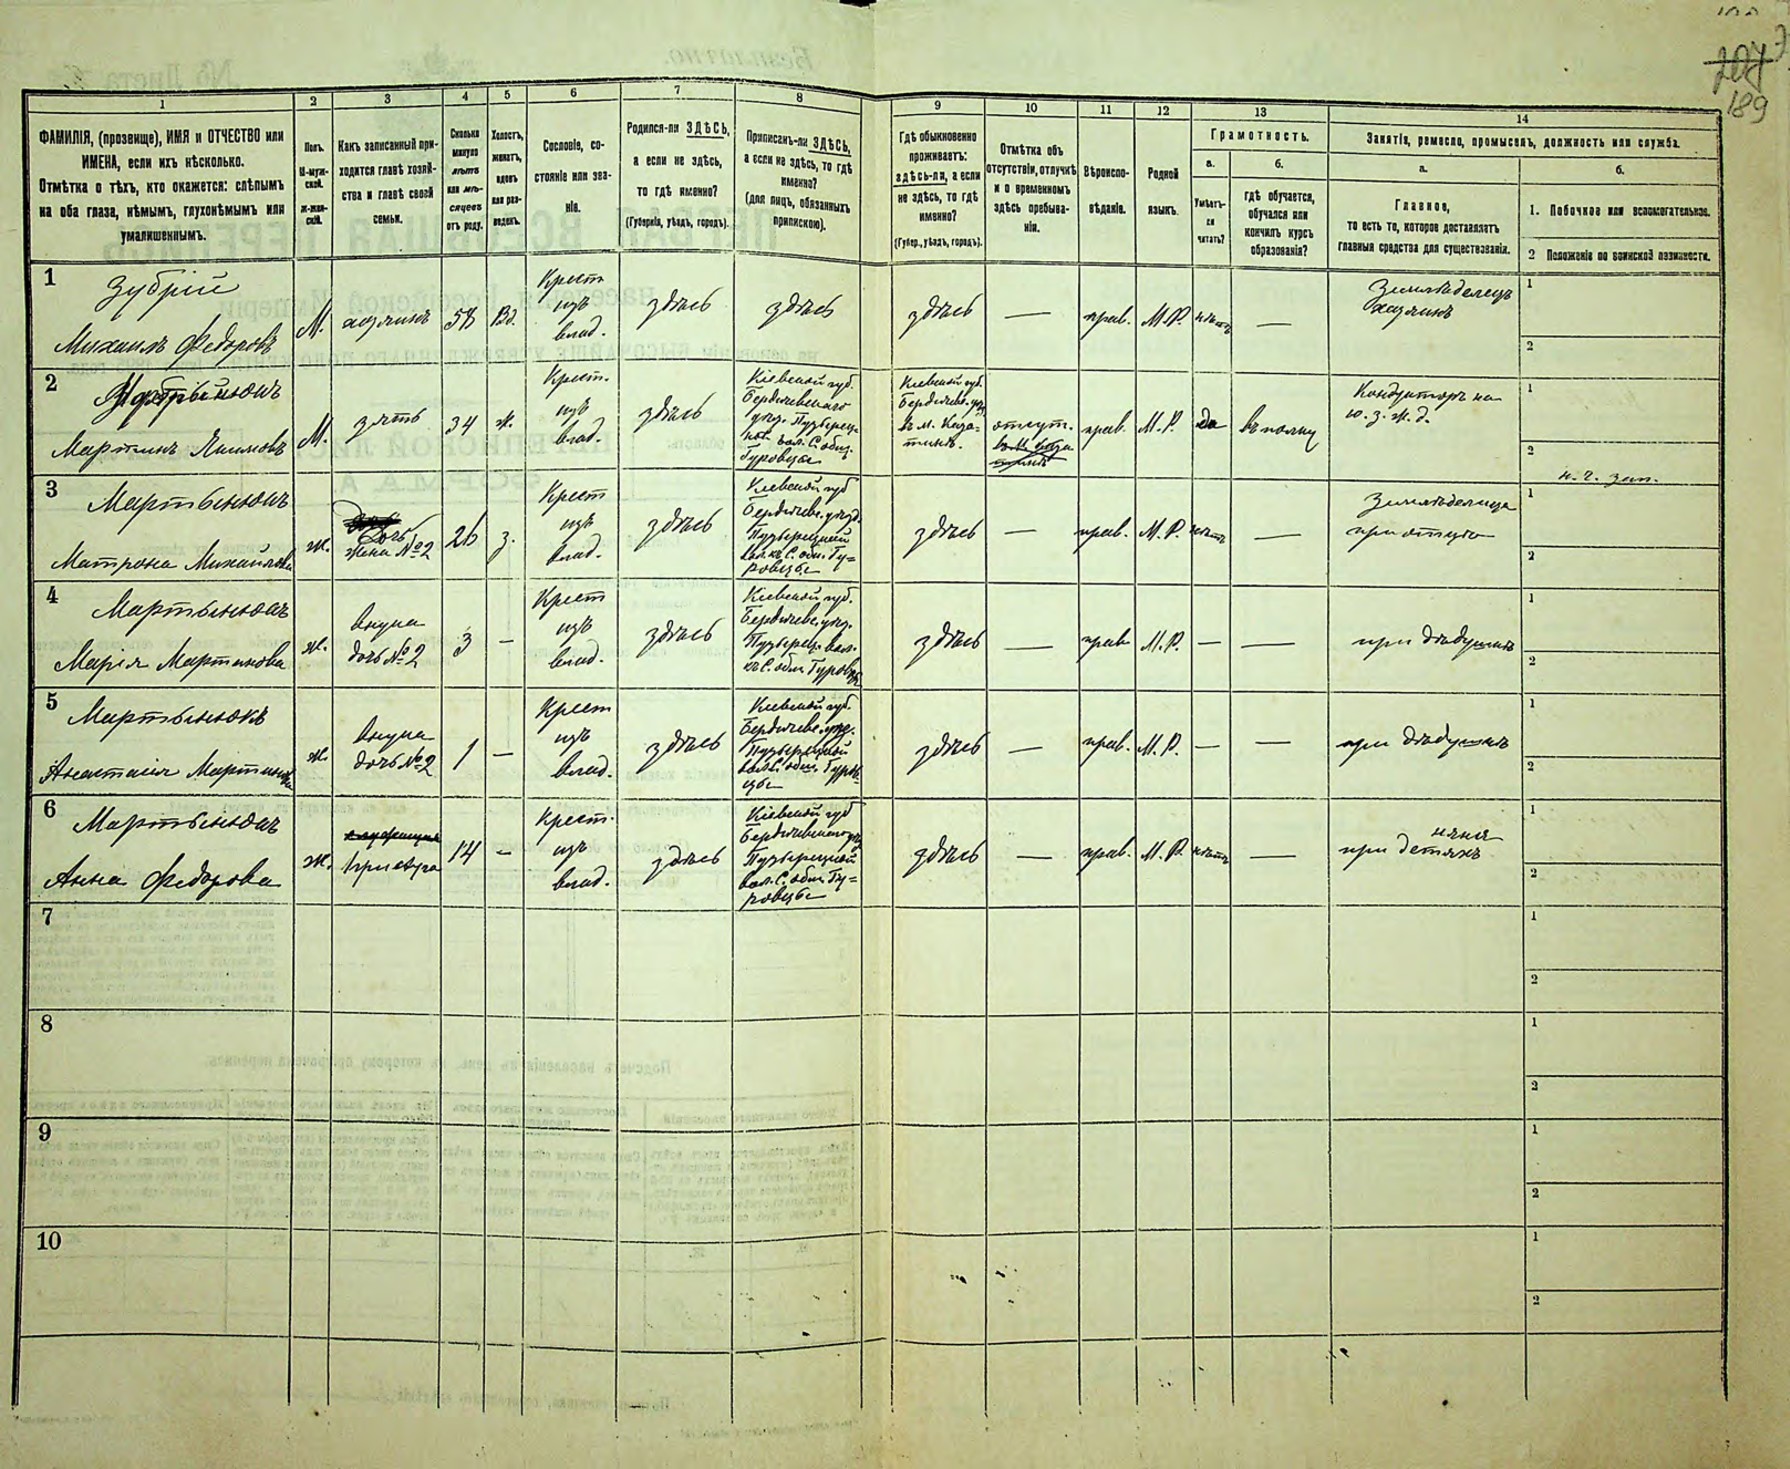 189
1 2 3 4 5 6 7 8 9 10 11 12 13 14
ФАМИЛІЯ, (прозвище), ИМЯ и ОТЧЕСТВО или
ИМЕНА, если ихъ нѣсколько.
Отмѣтка о тѣхъ, кто окажется: слѣпымъ
на оба глаза, нѣмымъ, глухонѣмымъ или
умалишеннымъ.
Полъ.
М-муж-
ской.
Ж-жен-
скій.
Какъ записанный при-
ходится главѣ хозяй-
ства и главѣ своей
семьи.
Сколько
минуло
лѣтъ
или мѣ-
сяцевъ
отъ роду.
Холостъ,
женатъ,
вдовъ
или раз-
веденъ.
Сословіе, со-
стояніе или зва-
ніе.
Родился-ли ЗДѢСЬ,
а если не здѣсь,
то гдѣ именно?
(Губернія, уѣздъ, городъ).
Приписанъ-ли ЗДѢСЬ,
а если не здѣсь, то гдѣ
именно?
(для лицъ, обязанныхъ
припискою).
Гдѣ обыкновенно
проживаетъ:
здѣсь-ли, а если
не здѣсь, то гдѣ
именно?
(Губер., уѣздъ, городъ).
Отмѣтка объ
отсутствіи, отлучкѣ
и о временномъ
здѣсь пребыва-
ніи.
Вѣроиспо-
вѣданіе.
Родной
языкъ.
Грамотность.
а.
Умѣетъ-
ли
читать?
б.
Гдѣ обучается,
обучался или
кончилъ курсъ
образованія?
Занятіе, ремесло, промыселъ, должность или служба.
а.
Главное,
то есть то, которое доставляетъ
главныя средства для существованія.
б.
1. Побочное или вспомогательное.
2 Положеніе по воинской повинности.
1
Зубрій
Михаилъ Федоровъ
М.
хозяинъ
58
Вд.
Крест
изъ
влад.
здѣсь
здѣсь
здѣсь
—
прав.
М.Р.
нѣтъ
—
Земледѣлецъ
хозяинъ
1
2
2
Мартинъ Якимовъ
М.
зять
34
ж.
Крест.
изъ
влад.
здѣсь
Кіевской губ.
Бердичевскаго
уѣзд. Пузырец-
кой вол. С. общ.
Кіевской губ.
Бердичев. уѣзд
въ м. Каза-
тинѣ.
отсут.
прав.
М.Р.
да
въ полку
Кондукторъ на
ю. з. ж. д.
1
2
н. ч. зап.
3
Мартынюкъ
Матрона Михайлова
ж.
дочь
жена №2
26
з.
Крест
изъ
влад.
здѣсь
Кіевской губ
Бердичев. уѣзд.
Пузырецкой
здѣсь
—
прав.
М.Р.
нѣтъ
—
Земледѣлица
при отцѣ
1
2
4
Мартынюкъ
Марія Мартинова
ж.
внука
дочь №2
3
—
Крест
изъ
влад.
здѣсь
Кіевской губ.
Бердичев. уѣзд.
Пузырец. вол.
здѣсь
—
прав.
М.Р.
—
—
при дѣдушкѣ
1
2
5
Мартынюкъ
Анастасія Мартинова
ж.
внука
дочь №2
1
—
Крест
изъ
влад.
здѣсь
Кіевской губ.
Бердичев. уѣзд.
Пузырецкой
здѣсь
—
прав.
М.Р.
—
—
при дѣдушкѣ
1
2
6
Мартынюкъ
Анна Федорова
ж.
прислуга
14
—
крест.
изъ
влад.
здѣсь
Кіевской губ
Бердичевскаго уѣзд
Пузырецкой
вол. С. общ. Гу=
здѣсь
—
прав.
М.Р.
нѣтъ
—
няня
при детяхъ
1
2
7
1
2
8
1
2
9
1
2
10
1
2